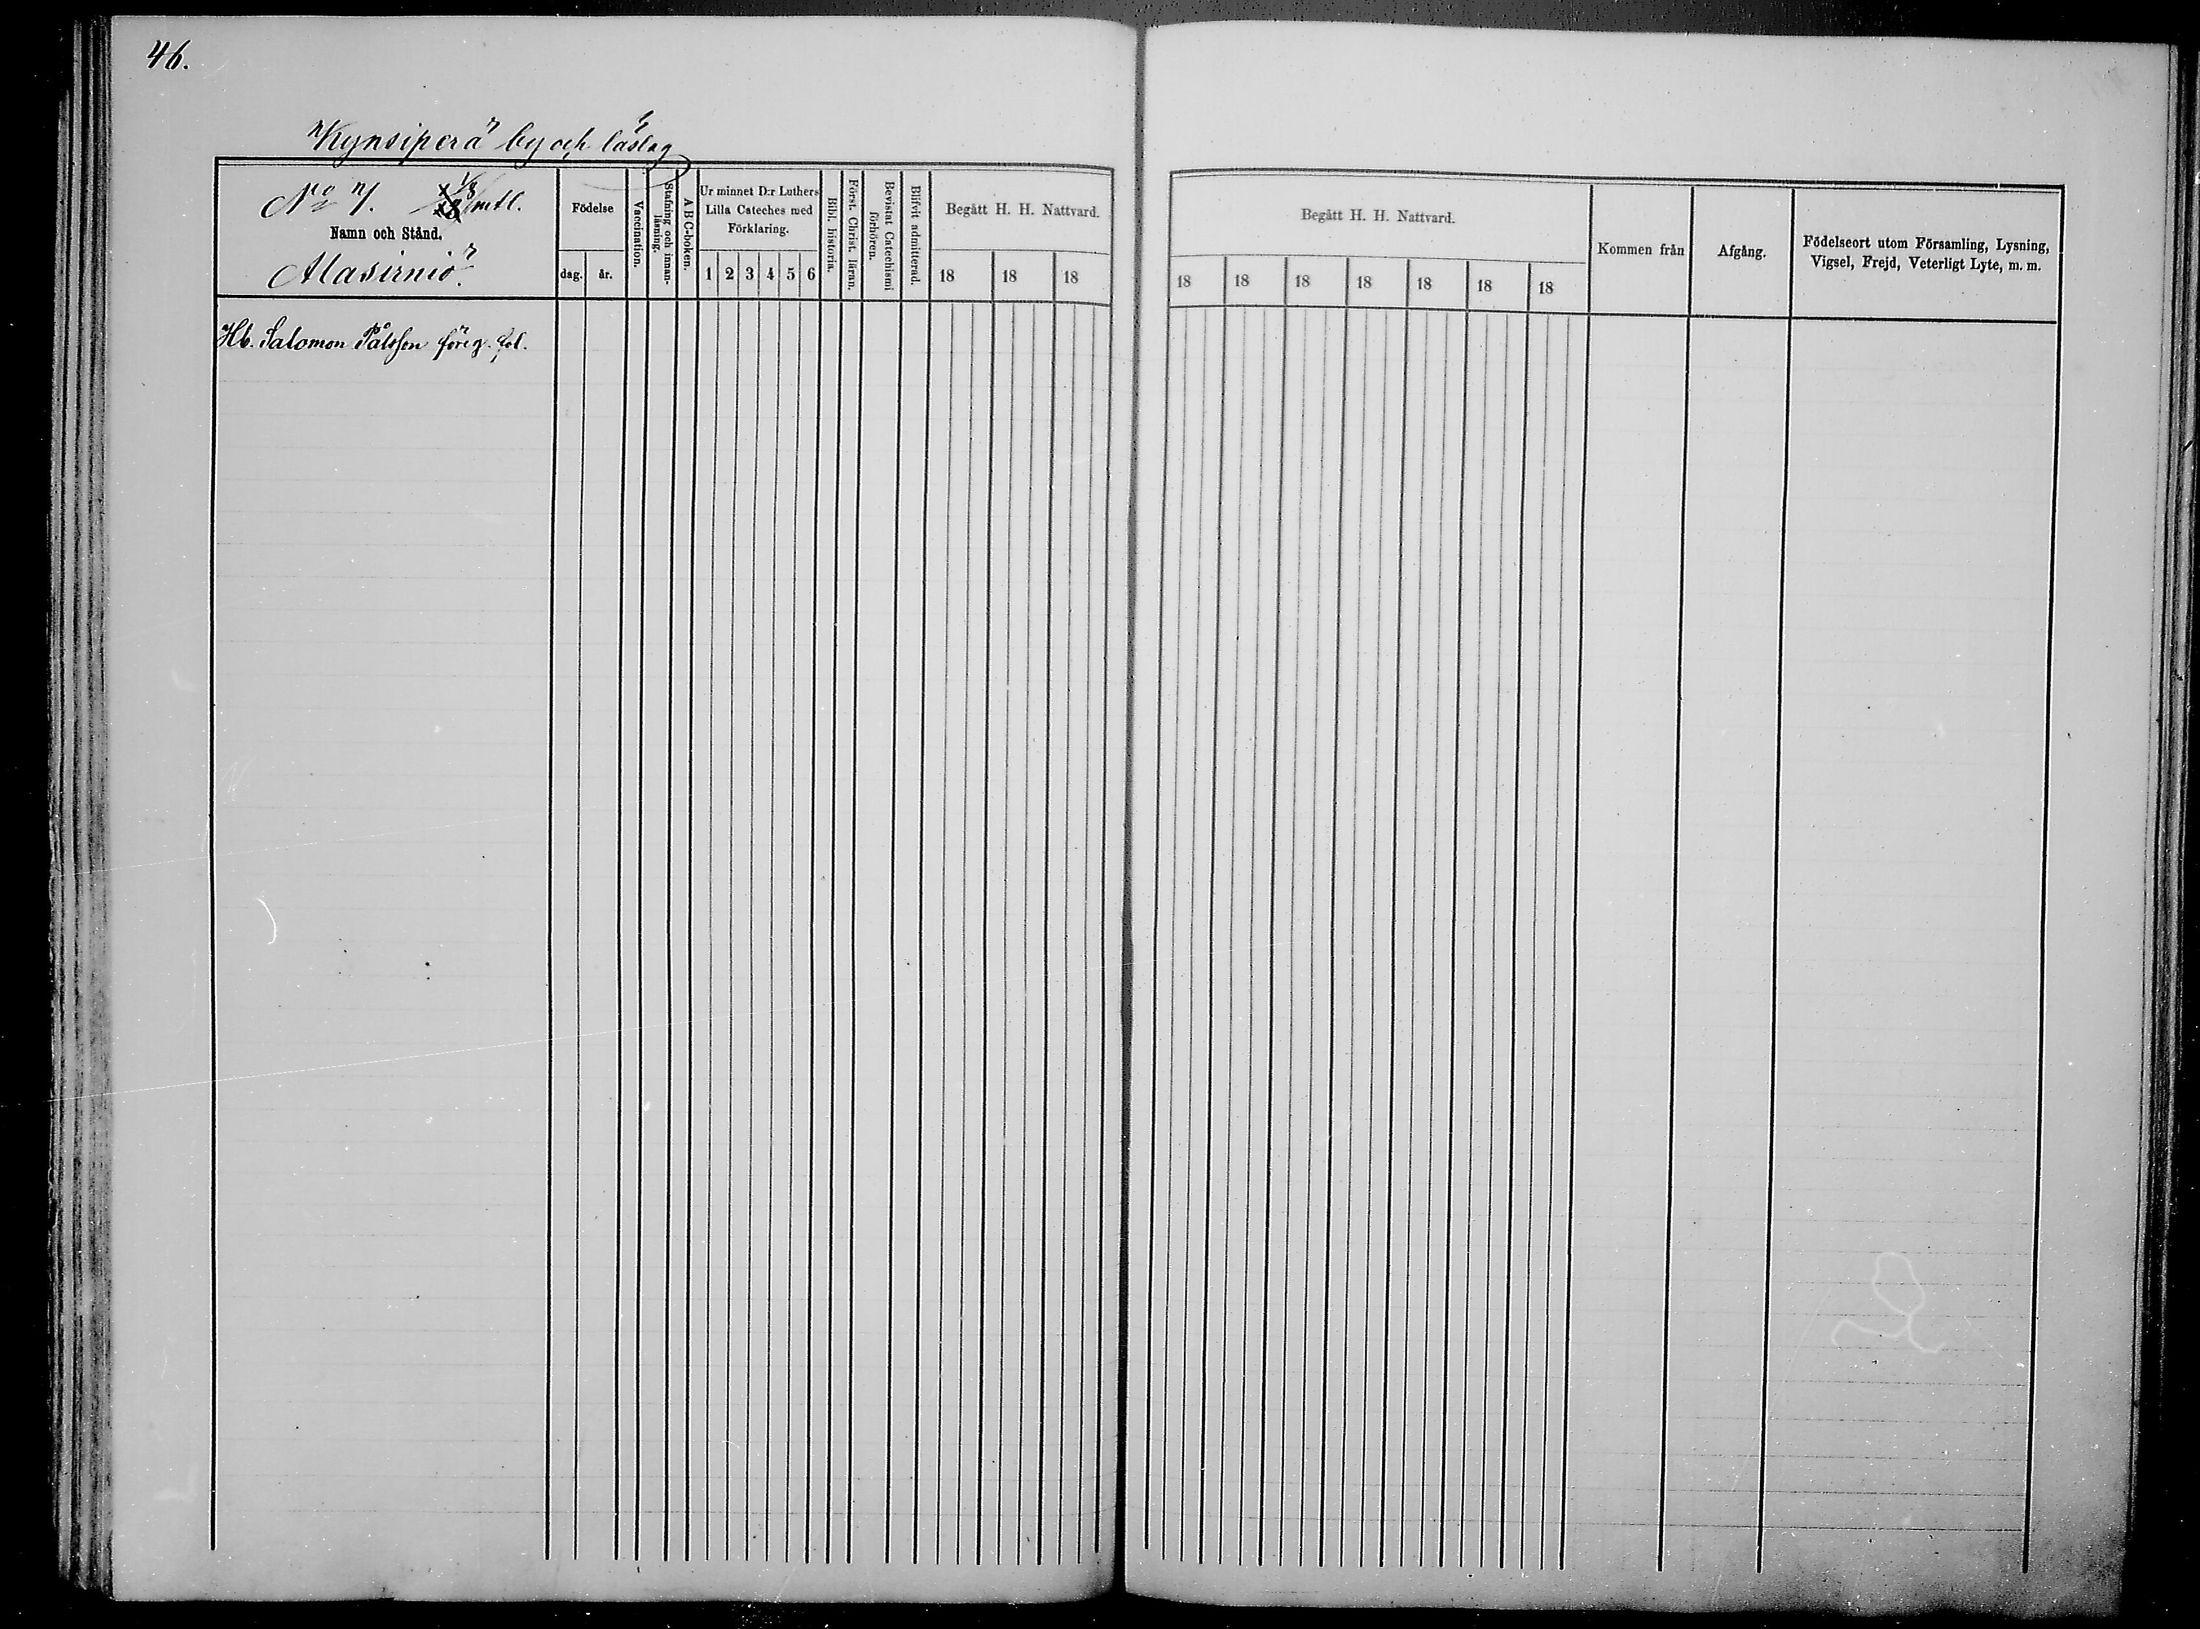 46.
Kynsiperä by och läslag
No 7. 1/8 mtl.
Namn och Stånd.
Alasirniö.
Födelse
dag. år.
Vaccination.
Stafning och innan-läsning.
A B C-boken.
Ur minnet D:r Luthers
Lilla Cateches med
Förklaring.
1 2 3 4 5 6
Bibl. historia.
Först. Christ. läran.
Bevistat Catechismi
förhören.
Blifvit admitterad.
Begått H. H. Nattvard.
18 18 18
Hb. Salomon Pålsson föreg. fol.
Begått H. H. Nattvard.
18 18 18 18 18 18 18
Kommen från
Afgång.
Födelseort utom Församling, Lysning,
Vigsel, Frejd, Veterligt Lyte, m. m.